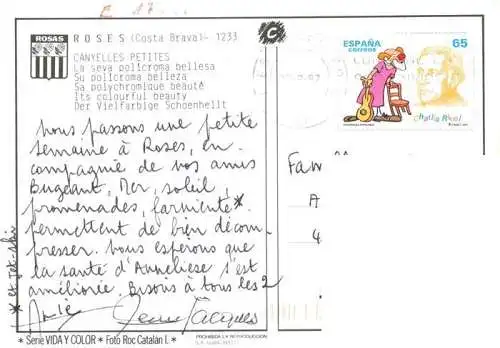 ROSAS
ROSES (Costa Brava)- 1233
CANYELLES PETITES
La seva policroma bellesa
Su policroma belleza
Sa polychromique beauté
Its colourful beauty
Der Vielfarbige Schoenhellt
C
ESPAÑA
CORREOS
65
Charlie Rivel
Nous passons une petite
semaine à Roses, en
compagnie de vos amis
Bugeant, Mer, soleil,
promenades, farniente*
permettent de bien décom-
presser. Nous espérons que
la santé d'Anneliese s'est
améliorée. Bisous à tous les 2
* et Jet-ski
Jean Jacques
Fam
A
4
* Serie VIDA Y COLOR * Foto Roc Catalan I. *
PROHIBIDA LA REPRODUCCION